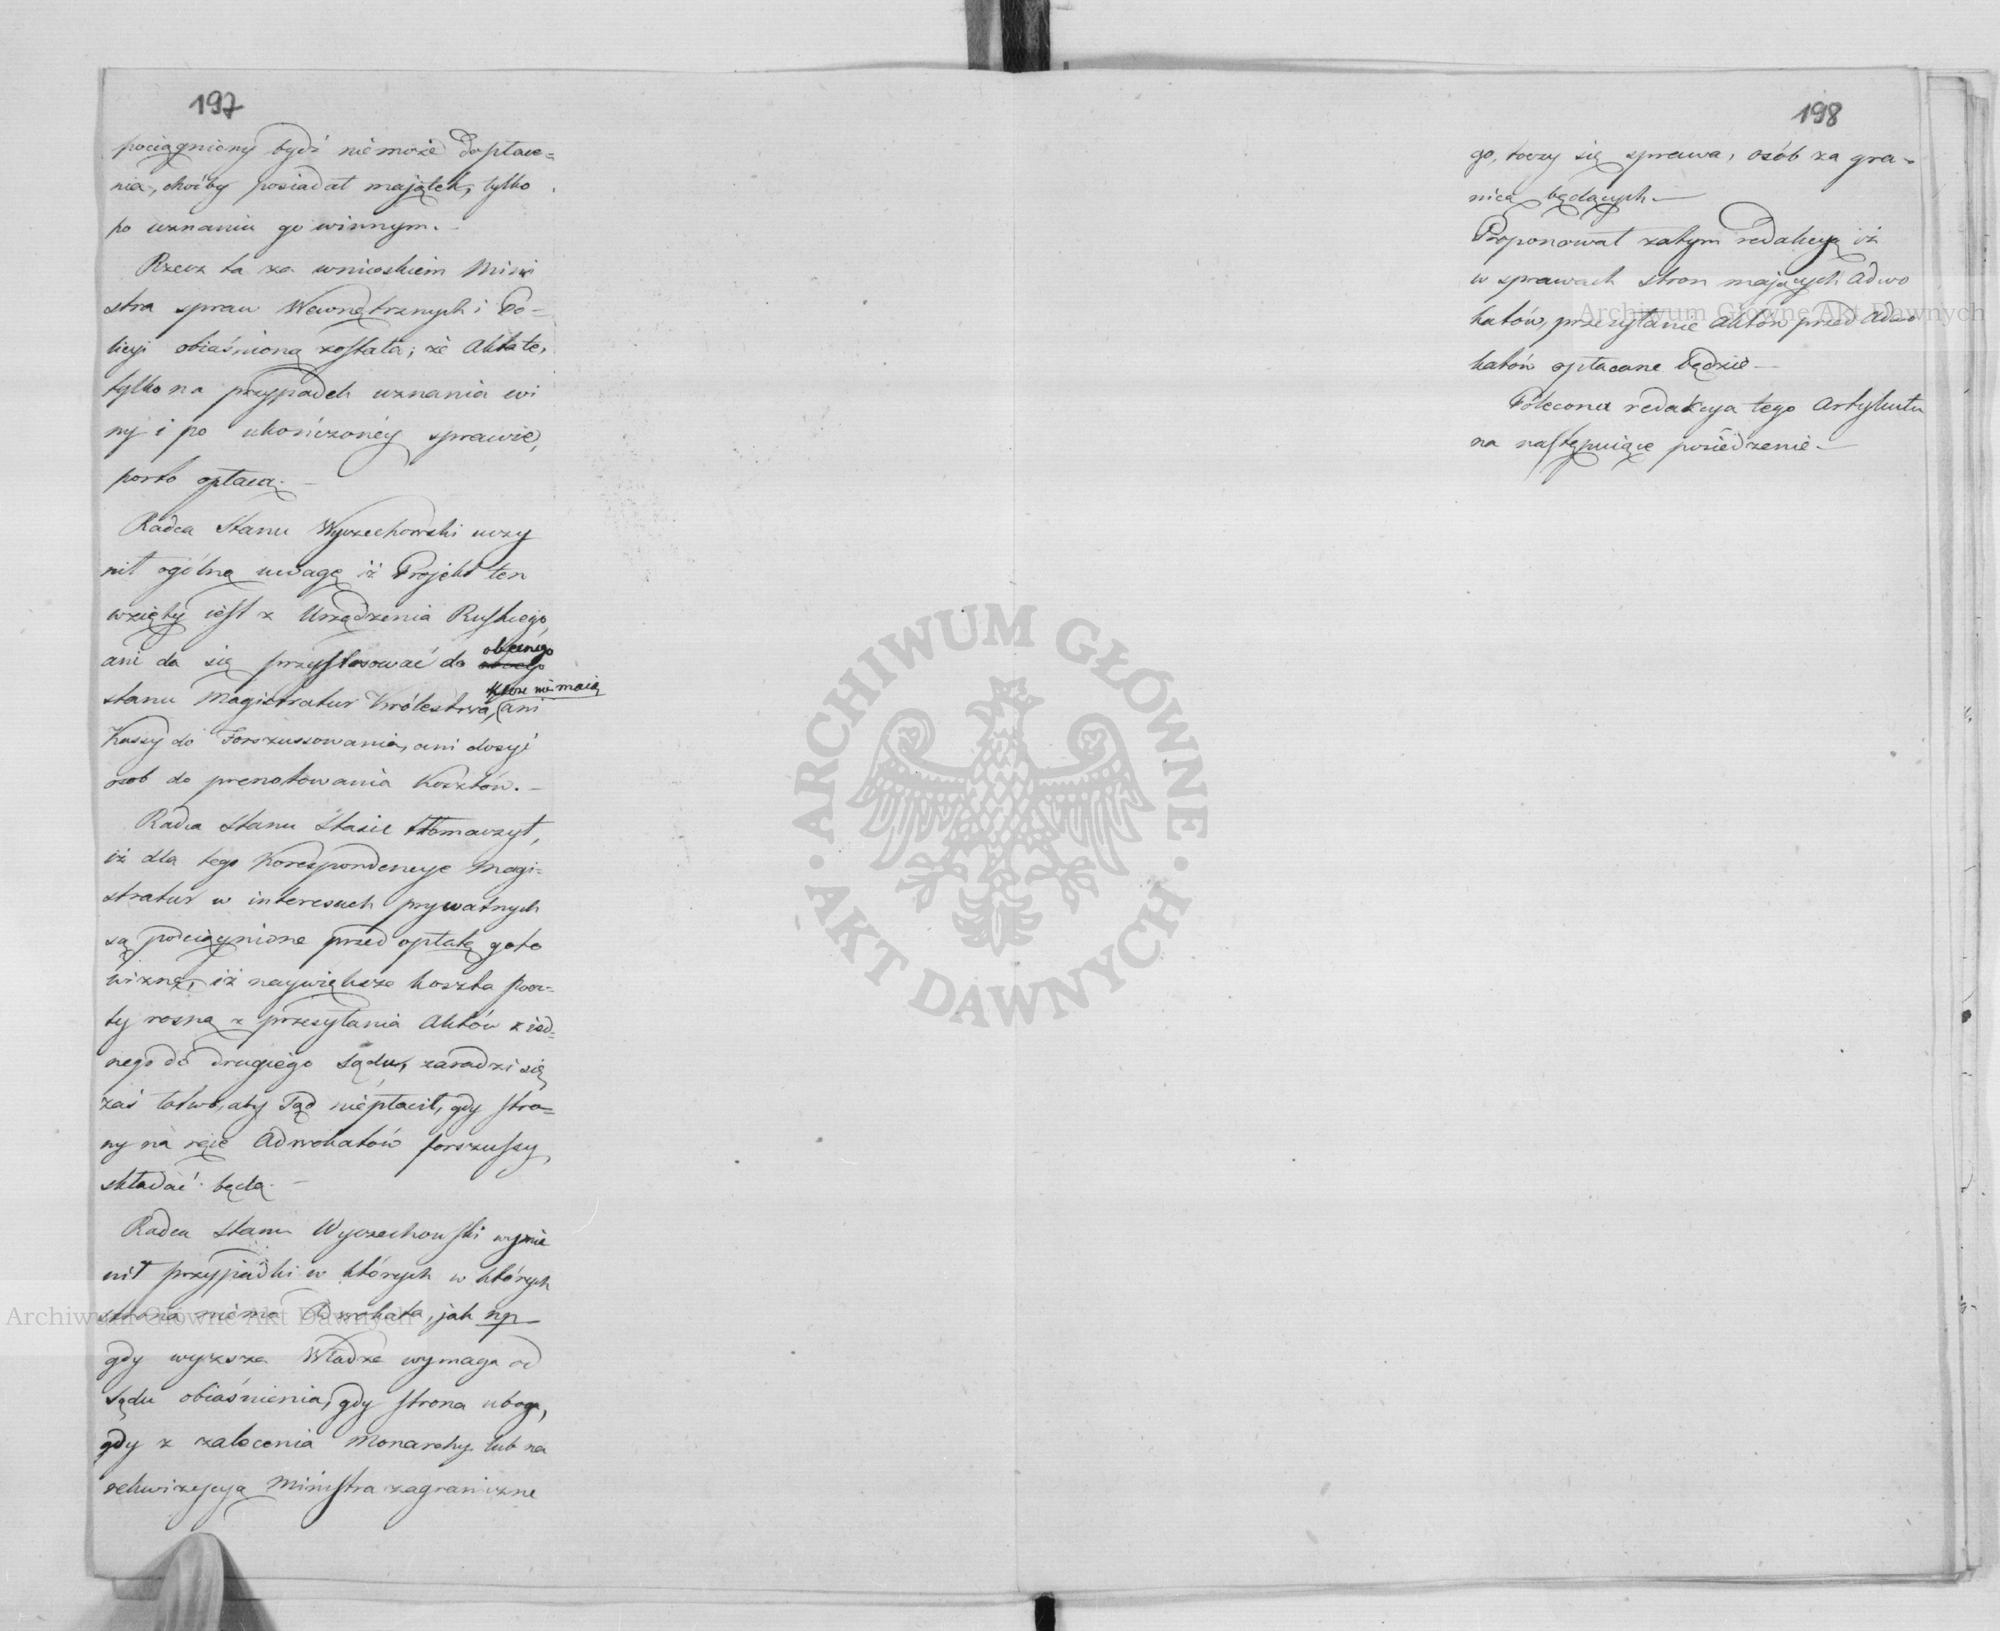 197
pociągniony bydź niemoże do płace=
nia, choćby posiadał majątek, tylko
po uznaniu go winnym.
Rzecz ta za wnioskiem Mini
stra spraw Wewnętrznych i Po=
licyi obiaśnioną została; że Akta te,
tylko na przypadek uznania wi
ny i po ukończonéy sprawie,
porto opłacą. —
Radca Stanu Wyczechowski uczy
nił ogólną uwagę iż Projekt ten
wzięty iest z Urządzenia Ruskiego,
ani da się przystosować do obecnego
stanu Magistratur Królestwa, które nie maią ani
Kassy do Forszussowania, ani dosyć
osob do prenotowania Kosztów. —
Radca Stanu Stasic tłomaczył,
iż dla tego Korespondencye Magi=
stratur w interesach prywatnych
są podciągnione przed opłatę goto
wizną, iż naywiększe koszta pocz=
ty rosną z przesyłania Aktów z ied=
nego do drugiego Sądu, zaradzi się
zaś łatwo, aby Sąd niepłacił, gdy stro=
ny na ręce Adwokatów forszussy,
składać będą. —
Radca Stanu Wyczechowski wymie
nił przypadki w których w których
strona niema Adwokata, jak np
gdy wyższa Władza wymaga od
Sądu obiaśnienia, gdy strona uboga,
gdy z zalecenia Monarchy lub na
rekwizycyą Ministra zagraniczne
198
go, toczy się sprawa, osób za gra=
nicą będących. —
Proponował zatym redakcyą iż
w sprawach stron mających Adwo
katów, przesyłanie Aktów przed Adwo
katów opłacane będzie —
Polecona redakcya tego Artykułu
na następuiące posiedzenie. —
ARCHIWUM GŁÓWNE AKT DAWNYCH
Archiwum Główne Akt Dawnych
Archiwum Główne Akt Dawnych